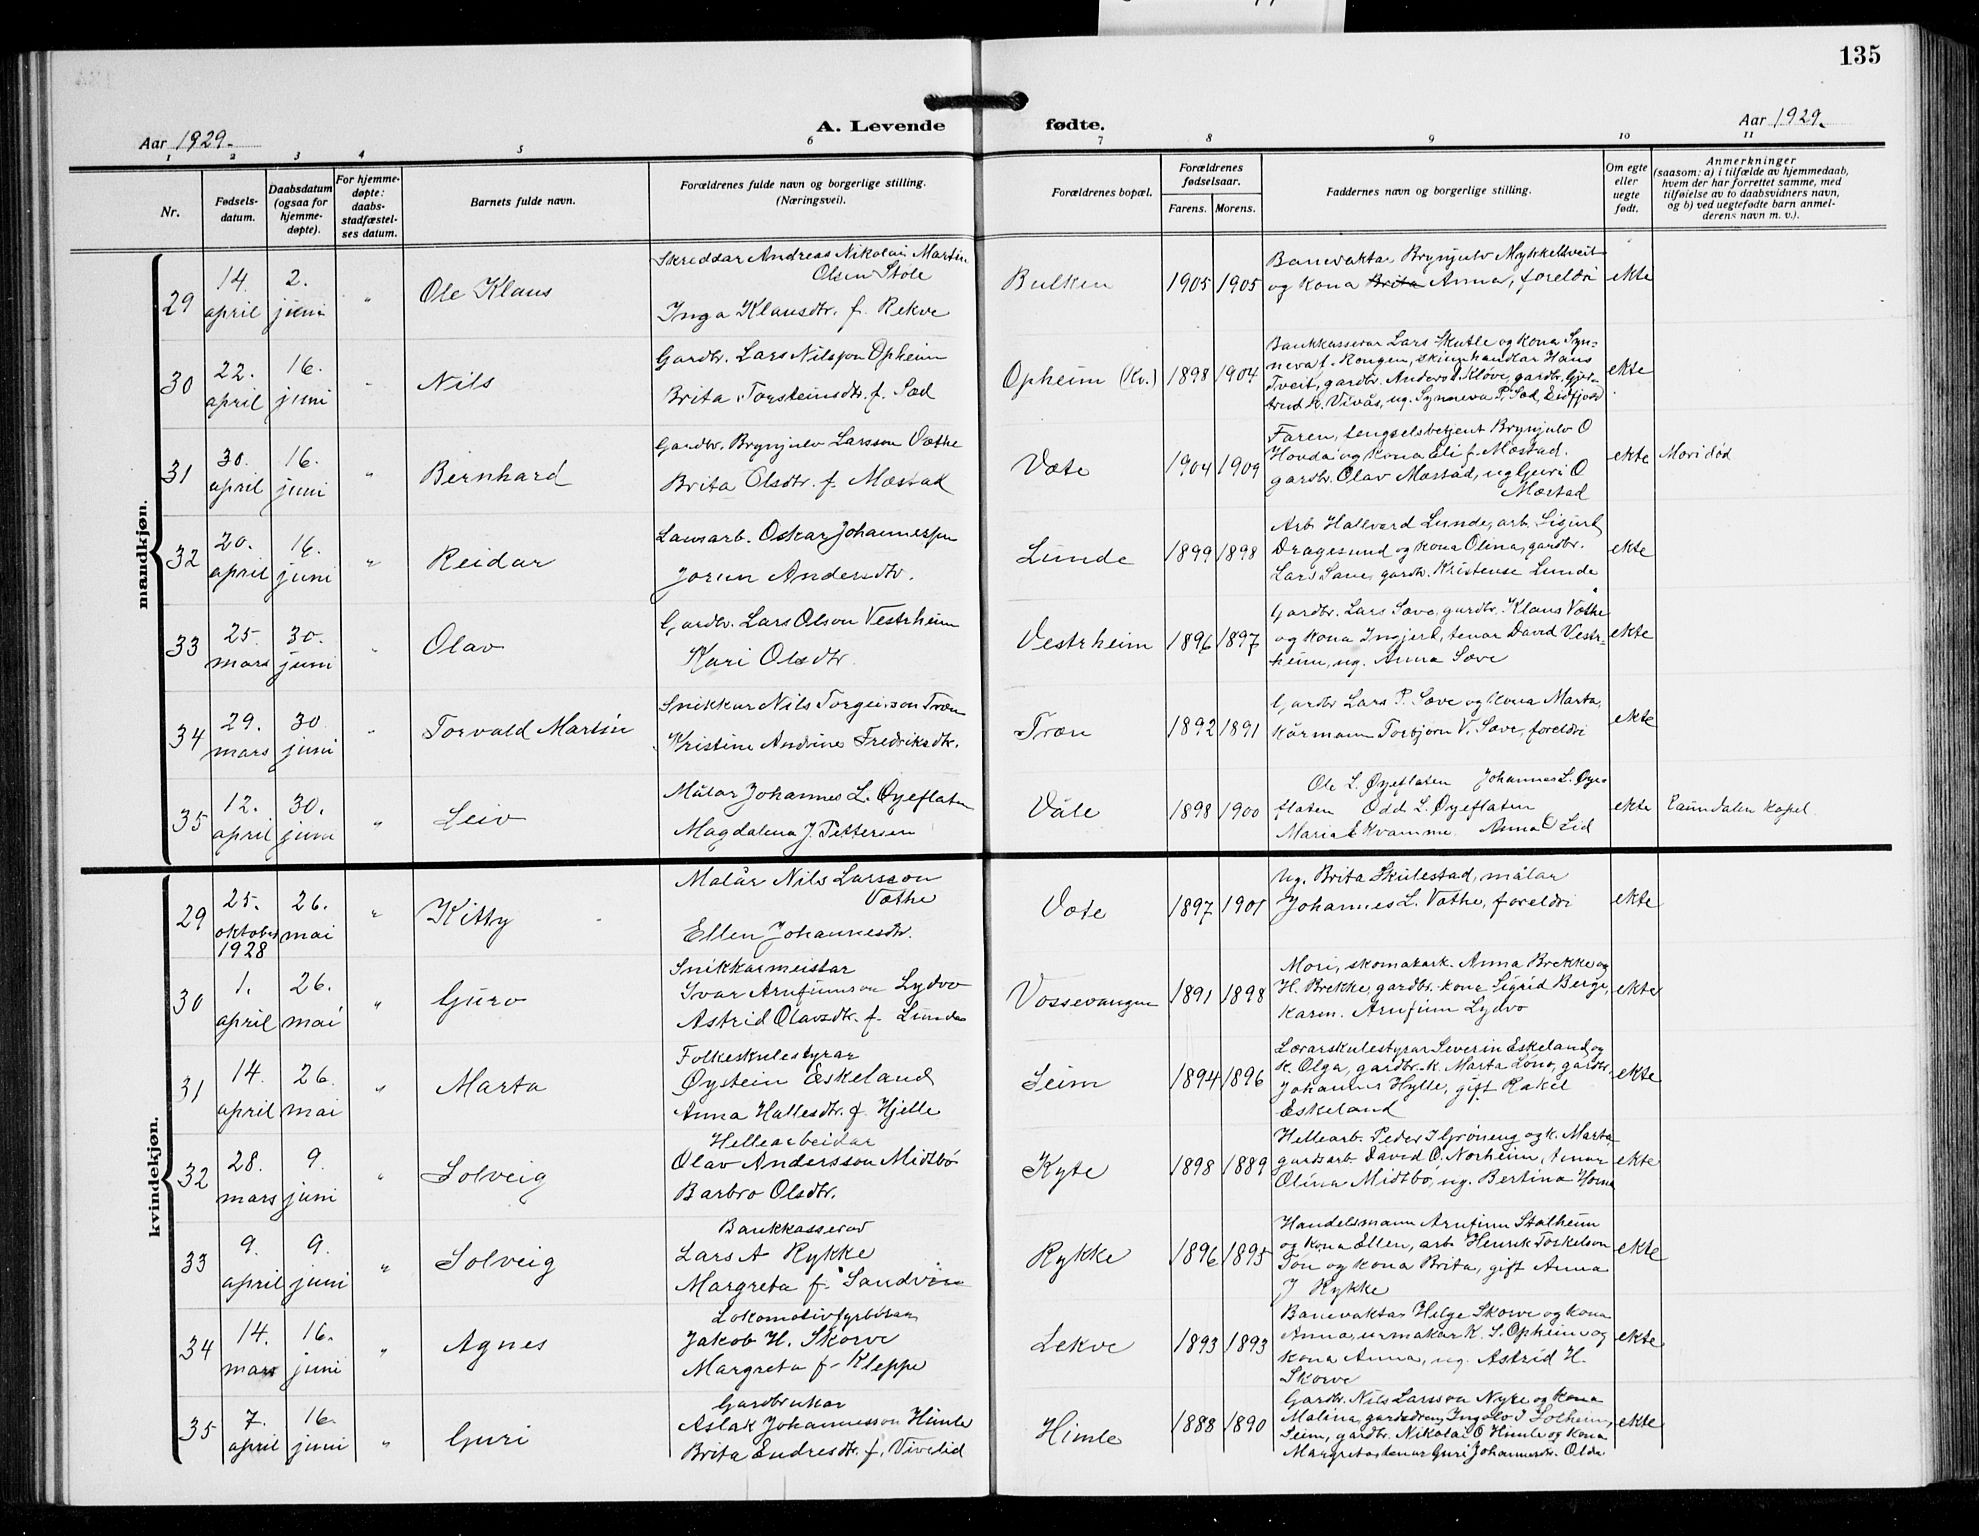 135
Aar 1929.
A. Levende fødte.
Aar 1929.
1 2 3 4 5 6 7 8 9 10 11
Nr.
Fødsels-
datum.
Daabsdatum
(ogsaa for
hjemme-
døpte).
For hjemme-
døpte:
daabs-
stadfæstel-
ses datum.
Barnets fulde navn.
Forældrenes fulde navn og borgerlige stilling.
(Næringsvei).
Forældrenes bopæl.
Forældrenes
fødselsaar.
Farens. Morens.
Faddernes navn og borgerlige stilling.
Om egte
eller
uegte
født.
Anmerkninger
(saasom: a) i tilfælde av hjemmedaab,
hvem der har forrettet samme, med
tilføielse av to daabsvidners navn,
og b) ved uegtefødte barn anmel-
derens navn m. v.).
mandkjøn.
29
14.
april
2.
juni
"
Ole Klaus
Skreddar Andreas Nikolai Martin
Olsen Støle
Inga Klausdtr. f. Rekve
Bulken
1905 1905
Banevaktar Brynjulv Mykkeltveit
og kona Brita Anna, foreldri
ekte
30
22.
april
16.
juni
"
Nils
Gardbr. Lars Nilsson Opheim
Brita Torsteinsdtr. f. Sæd
Opheim (Kv.)
1898 1904
Bankkasserar Lars Skutle og kona Syn-
neva f. Rongen, skinnhandlar Hans
Tveit, gardbr. Anders Kløve, gardbr. Gjer-
trud K. Vivås, ug. Synneva P. Sæd, Eidfjord
ekte
31
30.
april
16.
juni
"
Bernhard
Gardbr. Brynjulv Larsson Væthe
Brita Olsdtr. f. Mæstad
Væte
1904 1909
Faren, fengselsbetjent Brynjulv O
Honda og kona Eli f. Mæstad.
gardbr. Olav Mæstad, ug Guri O
Mæstad
ekte
Mori død
32
20.
april
16.
juni
"
Reidar
Lausarb. Oskar Johannesson
Jorun Andersdtr.
Lunde
1899 1898
Arb. Hallvard Lunde, arb. Sigurd
Dragesund og kona Olina, gardbr.
Lars Sæve, gardbr. Kristense Lunde
ekte
33
25.
mars
30.
juni
"
Olav
Gardbr. Lars Olson Vestrheim
Kari Olsdtr.
Vestrheim
1896 1897
Gardbr. Lars Sæve, gardbr. Klaus Væthe
og kona Ingjerd, tenar David Vestr-
heim, ug. Anna Sæve
ekte
34
29.
mars
30.
juni
"
Torvald Martin
Snikkar Nils Torgeirson Træn
Kristine Andrine Fredriksdtr.
Træn
1892 1891
Gardbr Lars P. Sæve og kona Marta,
Kårmann Torbjørn V. Sæve, foreldri
ekte
35
12.
april
30.
juni
"
Leiv
Målar Johannes L. Øyeflaten
Magdalena J. Pettersen
Väte
1898 1900
Ole L. Øyeflaten Johannes L. Øye-
flaten Odd L. Øyeflaten
Maria E Kvamme. Anna O Lid
ekte
Raundalen kapel.
kvindekjøn.
29
25.
oktober
1928
26.
mai
"
Kitty
Målar Nils Larsson
Væthe
Ellen Johannesdtr.
Væte
1897 1901
Ug. Brita Skulestad, målar
Johannes L. Væthe, foreldri
ekte
30
1.
april
26.
mai
"
Guro
Snikkarmeistar
Ivar Arnfinnson Lydvo
Astrid Olavsdtr. f. Lunde
Vossevangen
1891 1898
Mori, skomakark. Anna Brekke og
H. Brekke, gardbr. kona Sigrid Berge,
Karen. Arnfinn Lydvo
ekte
31
14.
april
26.
mai
"
Marta
Folkeskulestyrar
Øystein Eskeland
Anna Hallesdtr. f. Hjelle
Seim
1894 1896
Lærarskulestyrar Severin Eskeland og
k. Olga, gardbr. k. Marta Løno, gardbr.
Johannes Hylle, gift Rakel
Eskeland
ekte
32
28.
mars
9.
juni
"
Solveig
Hellearbeidar
Olav Andersson Midtbø
Barbro Olsdtr.
Kyte
1898 1889
Hellearb. Peder I Grøneng og k. Marta
gardsarb. David O. Norheim, tenar
Olina Midtbø, ug. Bertina Horna
ekte
33
9.
april
9.
juni
"
Solveig
Bankkasserar
Lars A Rykke
Margreta f. Sandvin
Rykke
1896 1895
Handelsmann Arnfinn Stalheim
og kona Ellen, arb. Henrik Toskelson
Tøn og kona Brita, gift Anna
J Rykke
ekte
34
14.
mars
16.
juni
"
Agnes
Lokomotivfyrbøtar
Jakob H. Skorve
Margreta f. Kleppe
Lekve
1893 1893
Banevaktar Helge Skorve og kona
Anna, urmakar K. S. Opheim og
kona Anna, ug. Astrid H.
Skorve
ekte
35
7.
april
16.
juni
"
Guri
Gardbrukar
Aslak Johannesson Himle
Brita Endresdtr. f. Vivelid
Himle
1888 1890
Gardbr. Nils Larsson Nyre og kona
Malina, gardsdreng Ingolv J Solheim,
Seim, gardbr. Nikolai O Himle og kona
Margreta, tenar Guri Johannesdtr. Olde
ekte